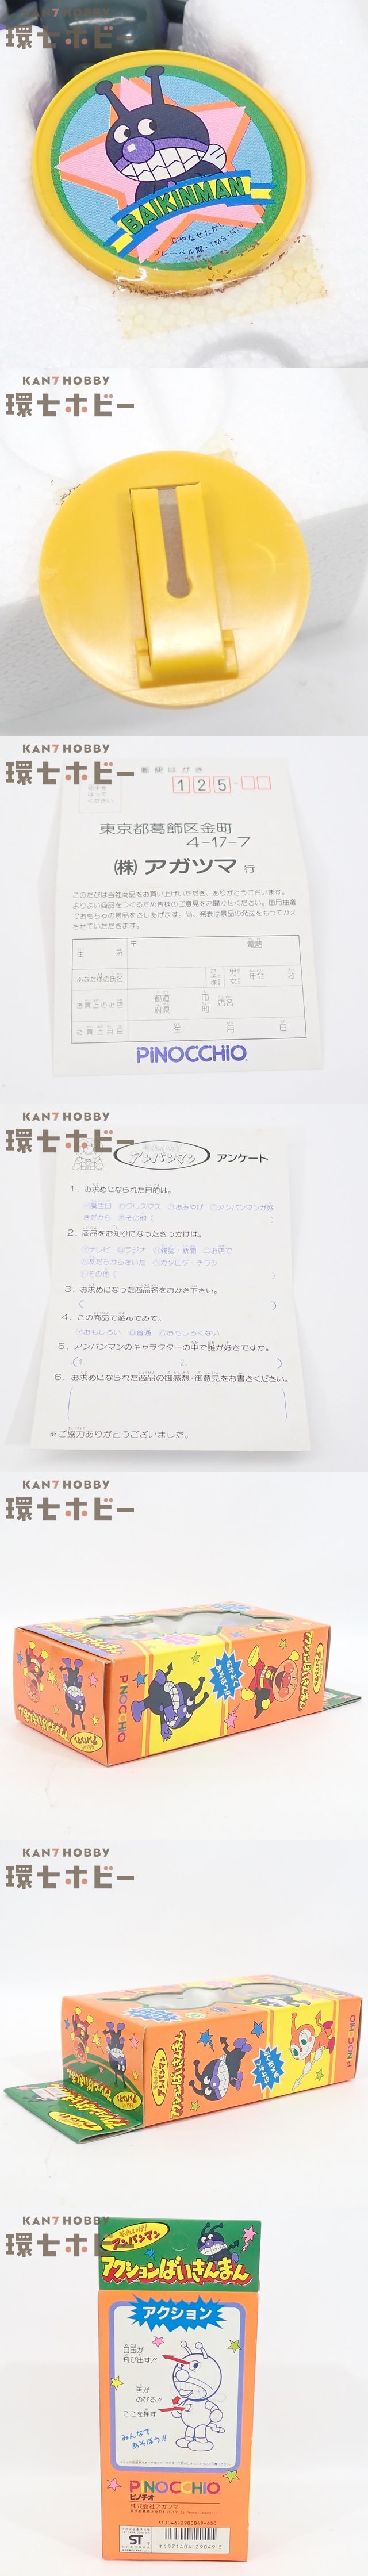 KAN7 HOBBY
環七ホビー
BAIKINMAN
©やなせたかし
フレーベル館・TMS・NTV
KAN7 HOBBY
環七ホビー
KAN7 HOBBY
環七ホビー
郵便はがき
切手を
はって
ください
125-
東京都葛飾区金町
4-17-7
(株) アガツマ 行
このたびは当社商品をお買い上げいただき、ありがとうございます。
よりよい商品をつくるため皆様のご意見をお聞かせください。毎月抽選
でおもちゃの景品をさしあげます。尚、発表は景品の発送をもってかえ
させていただきます。
住所 〒 電話
あなた様の氏名 お子様 男 女 年令 才
お買上のお店 都道府県 市町 店名
お買上月日 年 月 日
PINOCCHIO
KAN7 HOBBY
環七ホビー
アンパンマン アンケート
1. お求めになられた目的は。
誕生日 クリスマス おみやげ アンパンマンが好
きだから その他( )
2. 商品をお知りになったきっかけは。
テレビ ラジオ 雑誌・新聞 お店で
友だちからきいた カタログ・チラシ
その他( )
3. お求めになった商品名をおかき下さい。
( )
4. この商品で遊んでみて。
おもしろい 普通 おもしろくない
5. アンパンマンのキャラクターの中で誰が好きですか。
(1. 2. )
6. お求めになられた商品の御感想・御意見をお書きください。
※ご協力ありがとうございました。
KAN7 HOBBY
環七ホビー
PINOCCHIO
KAN7 HOBBY
環七ホビー
PINOCCHIO
KAN7 HOBBY
環七ホビー
それいけ!
アンパンマン
アクションばいきんまん
アクション
目玉が
飛び出す!!
舌が
のびる!!
ここを押す
みんなで
あそぼう!!
PINOCCHIO
ピノチオ
株式会社アガツマ
ST
4971404 29049 5